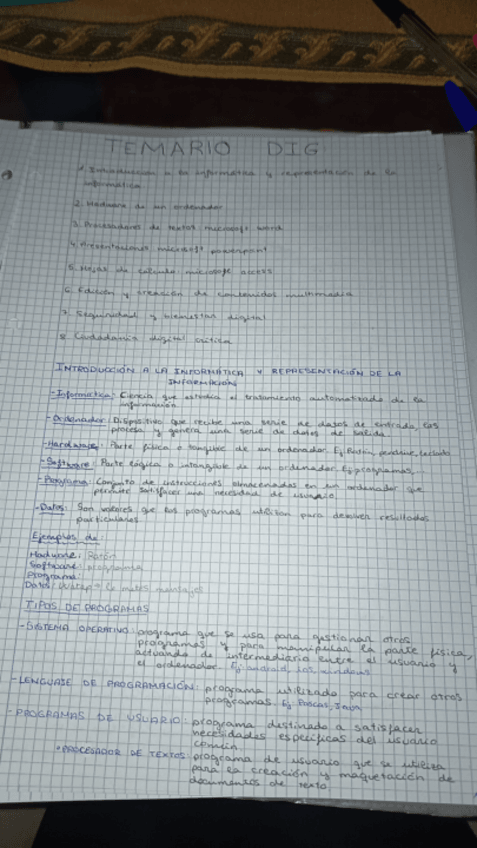 TEMARIO DIG
1. Introducción a la informática y representación de la
informática
2. Hardware de un ordenador
3. Procesadores de textos microsoft word
4. Presentaciones microsoft powerpoint
5. Hojas de cálculo microsoft access
6. Edición y creación de contenidos multimedia
7. Seguridad y bienestar digital
8. Ciudadanía digital crítica
INTRODUCCIÓN A LA INFORMÁTICA Y REPRESENTACIÓN DE LA
INFORMACIÓN
-Informática: Ciencia que estudia el tratamiento automatizado de la
información.
-Ordenador: Dispositivo que recibe una serie de datos de entrada, los
procesa y genera una serie de datos de salida.
-Hardware: Parte física o tangible de un ordenador. Ej: Ratón, pendrive, teclado
-Software: Parte lógica o intangible de un ordenador. Ej: programas,...
-Programa: Conjunto de instrucciones almacenadas en un ordenador que
permite satisfacer una necesidad de usuario.
-Datos: Son valores que los programas utilizan para devolver resultados
particulares.
Ejemplos de:
Hardware: Ratón
Software: programa
Programa:
Datos:
TIPOS DE PROGRAMAS
-SISTEMA OPERATIVO: programa que se usa para gestionar otros
programas y para manipular la parte física,
actuando de intermediario entre el usuario y
el ordenador. Ej: android, ios, windows
-LENGUAJE DE PROGRAMACIÓN: programa utilizado para crear otros
programas. Ej: Pascas, Java
-PROGRAMAS DE USUARIO: programa destinado a satisfacer
necesidades específicas del usuario
común
*PROCESADOR DE TEXTOS: programa de usuario que se utiliza
para la creación y maquetación de
documentos de texto